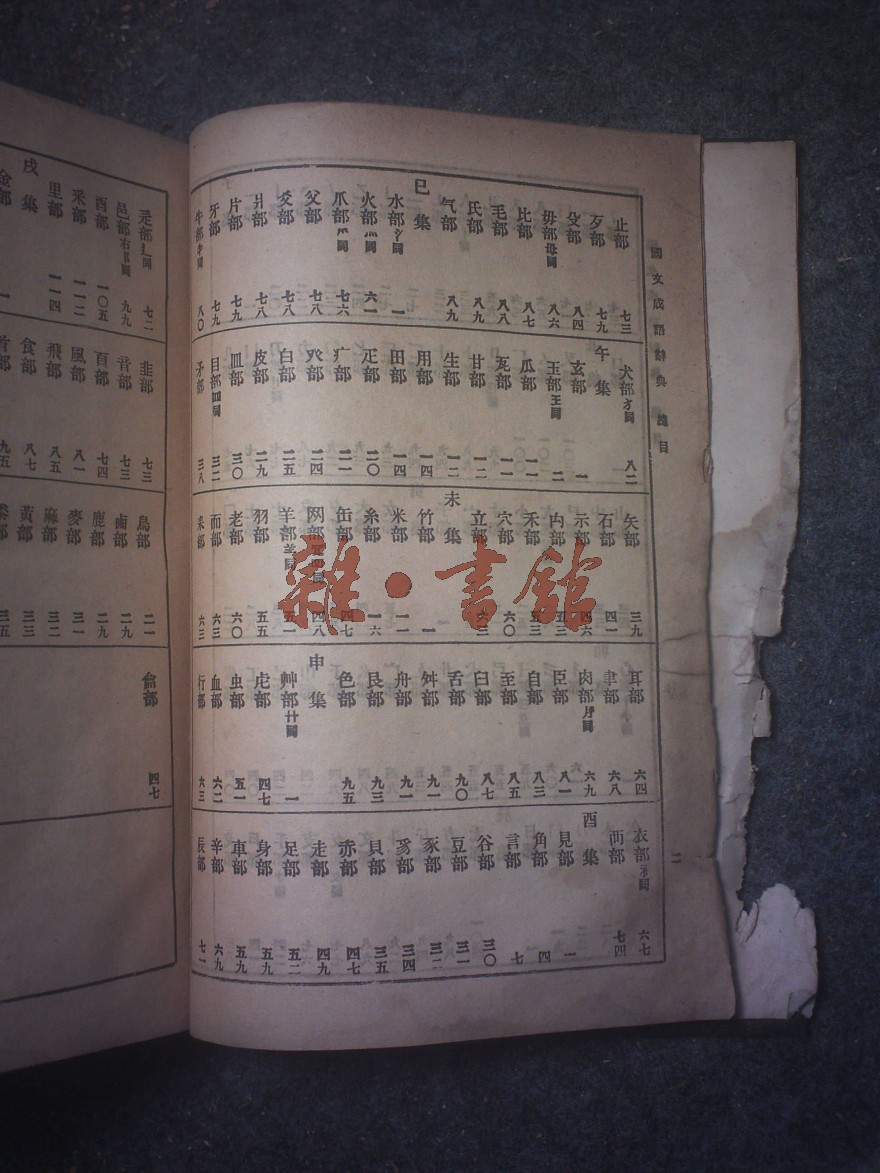 國文成語辭典 總目
二
止部 七三
歹部 七九
殳部 八四
毋部母同 八六
比部 八七
毛部 八八
氏部 八九
气部 八九
巳集
水部氵同 一
火部灬同 六一
爪部爫同 七六
父部 七八
爻部 七八
爿部 七八
片部 七九
牙部 七九
牛部牜同 八〇
犬部犭同 八二
午集
玄部 一
玉部王同 二
瓜部 一一
瓦部 一一
甘部 一二
生部 一二
用部 一四
田部 一四
疋部 二〇
疒部 二一
癶部 二四
白部 二五
皮部 二九
皿部 三〇
目部罒同 三二
矛部 三八
矢部 三九
石部 四一
示部 四六
禸部 五三
禾部 五三
穴部 六〇
立部 六三
未集
竹部 一
米部 一一
糸部 一六
缶部 四七
网部 四八
羊部⺶同 五一
羽部 五五
老部 六〇
而部 六三
耒部 六三
耳部 六四
聿部 六八
肉部月同 六九
臣部 八一
自部 八三
至部 八五
臼部 八七
舌部 九〇
舛部 九一
舟部 九一
艮部 九三
色部 九五
申集
艸部艹同 一
虍部 四七
虫部 五一
血部 六二
行部 六三
衣部衤同 六七
襾部 七四
酉集
見部 一
角部 四
言部 七
谷部 三〇
豆部 三一
豕部 三二
豸部 三四
貝部 三五
赤部 四七
走部 四九
足部 五二
身部 五九
車部 五九
辛部 六九
辰部 七一
辵部辶同 七二
邑部右阝同 九九
酉部 一〇五
釆部 一一二
里部 一一四
戌集
金部 一
韭部 七三
音部 七三
頁部 七四
風部 八一
飛部 八五
食部 八七
首部 九五
鳥部 二一
鹵部 二九
鹿部 二九
麥部 三一
麻部 三三
黃部 三三
黍部 三五
龠部 四七
雜·書館